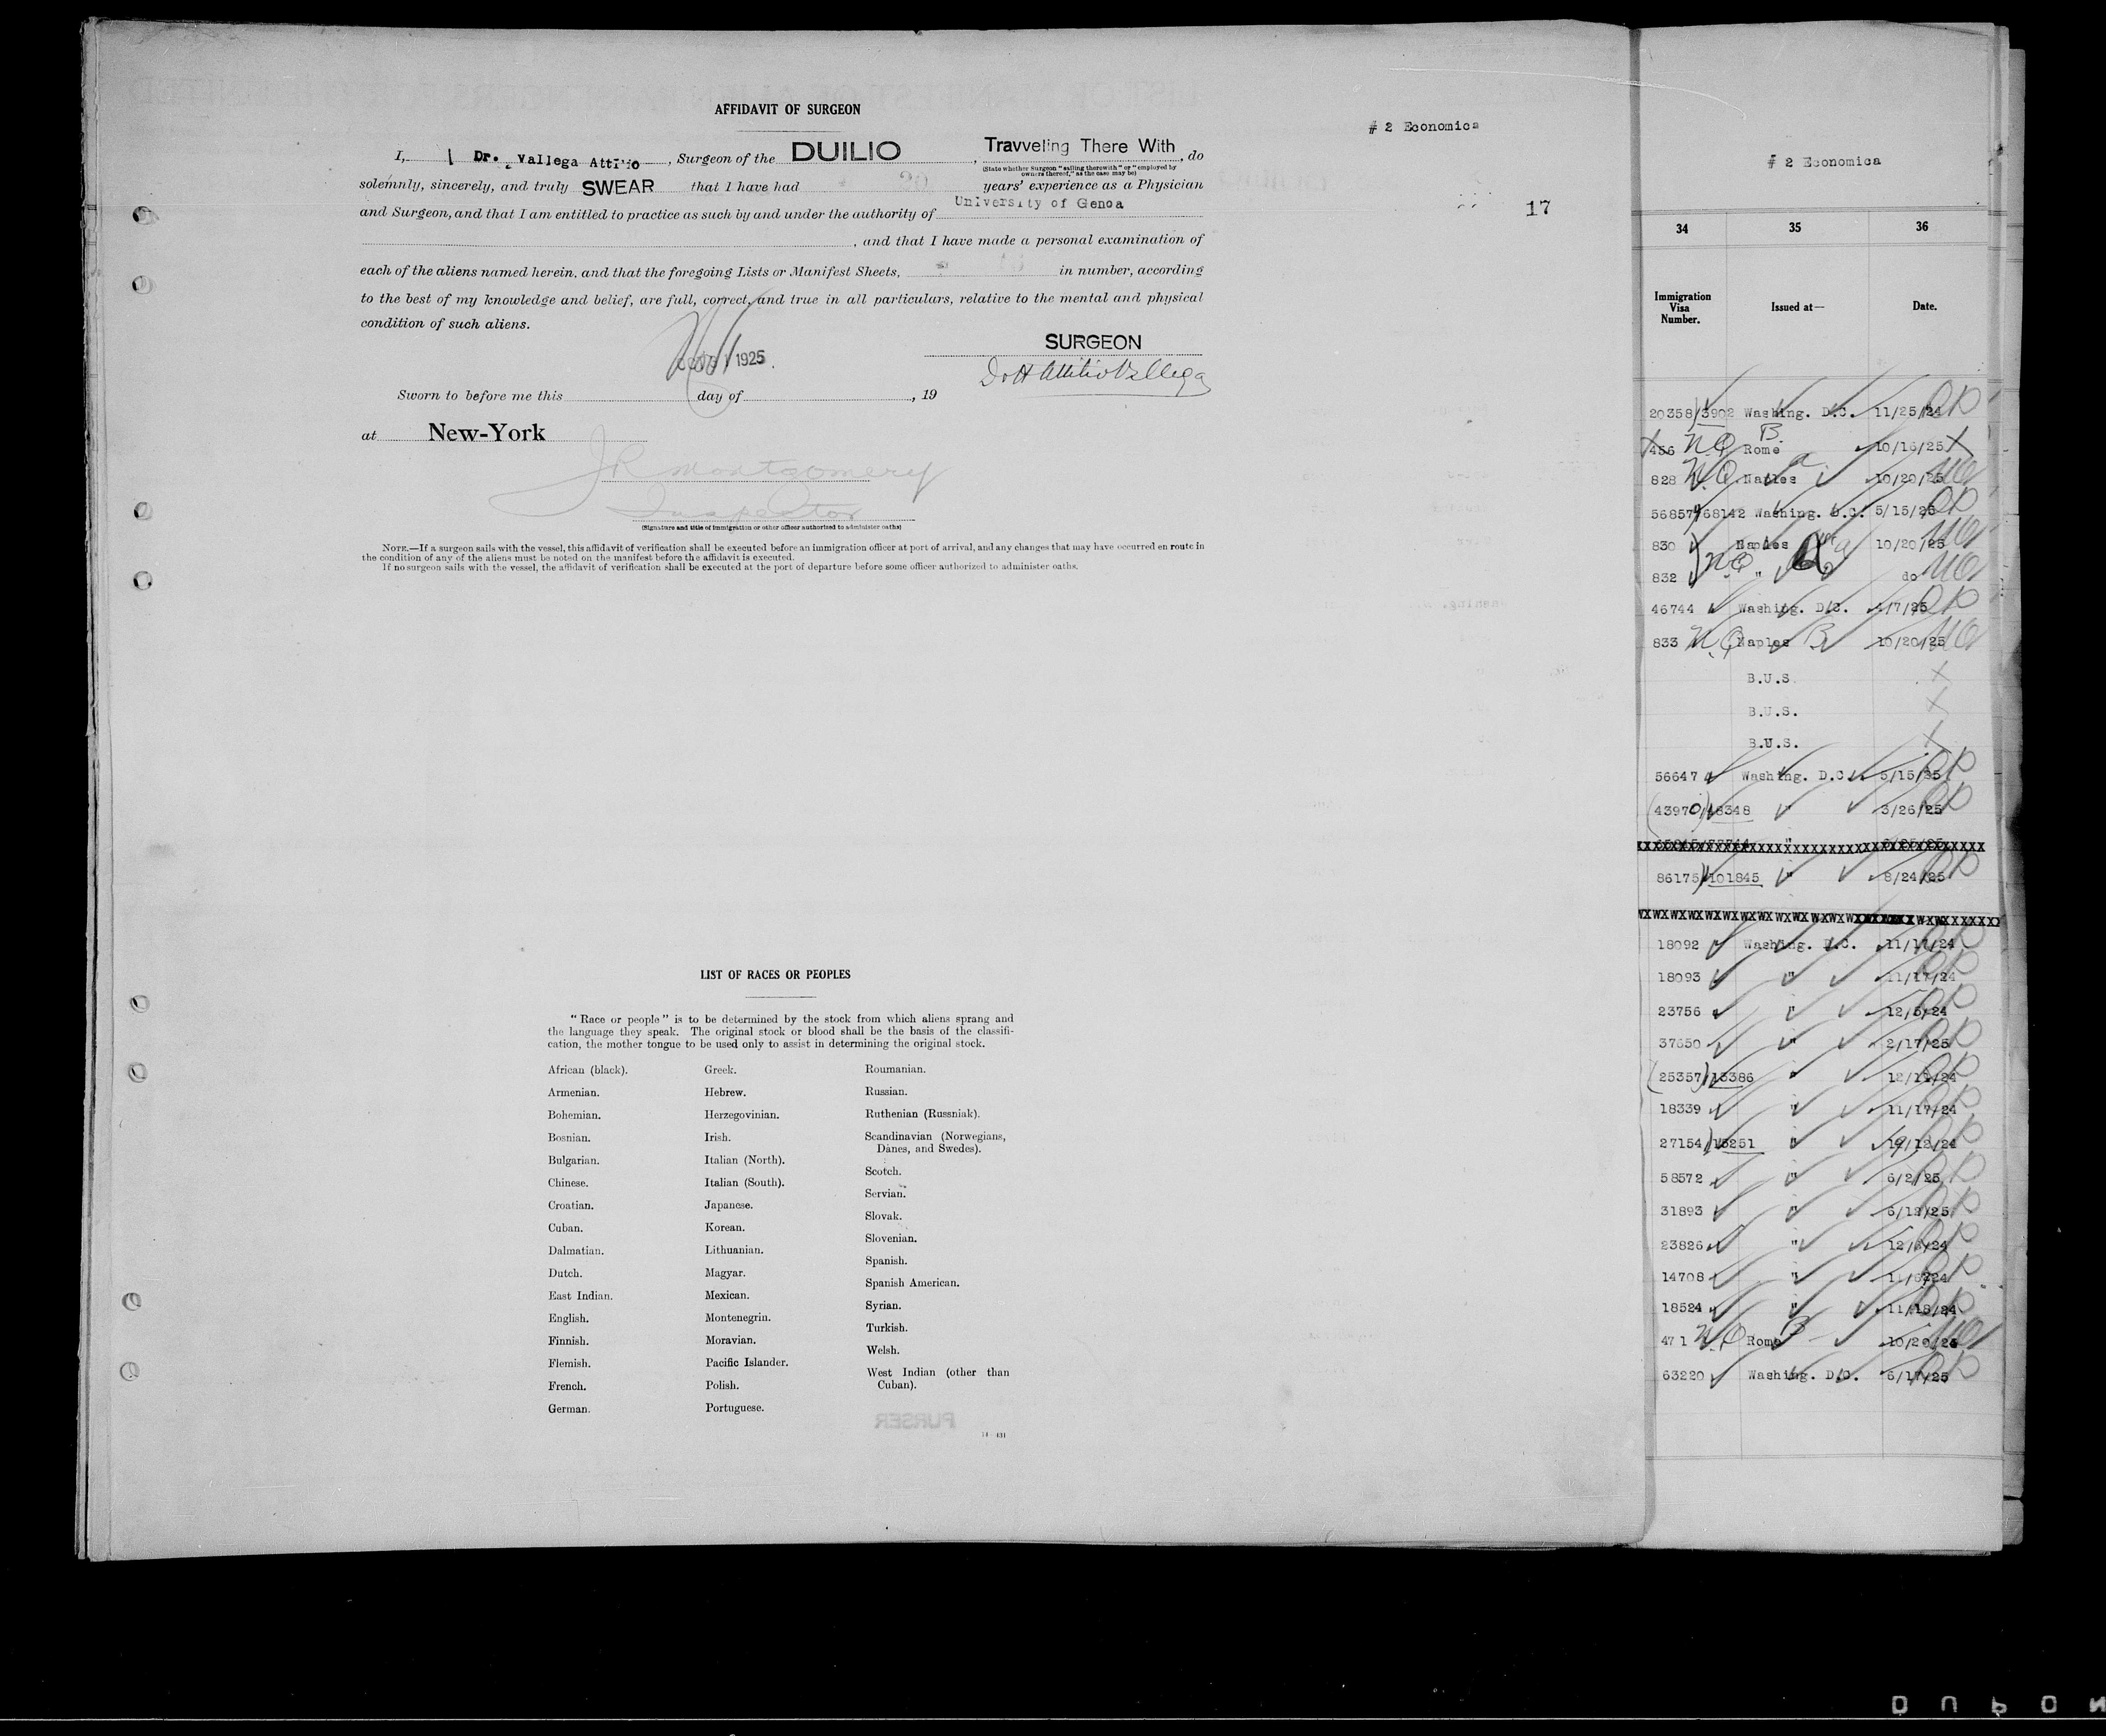 AFFIDAVIT OF SURGEON
# 2 Economica
I, Dr. Vallega Attilio, Surgeon of the DUILIO, Travveling There With, do
(State whether Surgeon "sailing therewith" or "employed by
owners thereof," as the case may be)
solemnly, sincerely, and truly SWEAR that I have had 20 years' experience as a Physician
and Surgeon, and that I am entitled to practice as such by and under the authority of University of Genoa
17
, and that I have made a personal examination of
each of the aliens named herein, and that the foregoing Lists or Manifest Sheets, in number, according
to the best of my knowledge and belief, are full, correct, and true in all particulars, relative to the mental and physical
condition of such aliens.
SURGEON
1925
Dr Attilio Vallega
Sworn to before me this day of , 19
at New-York
J R Montgomery
Inspector
(Signature and title of immigration or other officer authorized to administer oaths)
NOTE.—If a surgeon sails with the vessel, this affidavit of verification shall be executed before an immigration officer at port of arrival, and any changes that may have occurred en route in
the condition of any of the aliens must be noted on the manifest before the affidavit is executed.
If no surgeon sails with the vessel, the affidavit of verification shall be executed at the port of departure before some officer authorized to administer oaths.
LIST OF RACES OR PEOPLES
"Race or people" is to be determined by the stock from which aliens sprang and
the language they speak. The original stock or blood shall be the basis of the classifi-
cation, the mother tongue to be used only to assist in determining the original stock.
African (black).
Armenian.
Bohemian.
Bosnian.
Bulgarian.
Chinese.
Croatian.
Cuban.
Dalmatian.
Dutch.
East Indian.
English.
Finnish.
Flemish.
French.
German.
Greek.
Hebrew.
Herzegovinian.
Irish.
Italian (North).
Italian (South).
Japanese.
Korean.
Lithuanian.
Magyar.
Mexican.
Montenegrin.
Moravian.
Pacific Islander.
Polish.
Portuguese.
Roumanian.
Russian.
Ruthenian (Russniak).
Scandinavian (Norwegians,
Danes, and Swedes).
Scotch.
Servian.
Slovak.
Slovenian.
Spanish.
Spanish American.
Syrian.
Turkish.
Welsh.
West Indian (other than
Cuban).
PURSER
# 2 Economica
34 35 36
Immigration
Visa
Number.
Issued at—
Date.
20358/3902 Washing. D.C. 11/25/24 OK
456 N.Q. Rome B. 10/16/25 X
828 N.Q. Naples 10/20/25 NQ
56857/68142 Washing. D.C. 5/15/25 OK
830 Naples 10/20/25 NQ
832 NQ " do NQ
46744 Washing. D.C. 4/7/25 OK
833 N.Q. Naples B 10/20/25 NQ
B.U.S. X
B.U.S. X
B.U.S. X
56647 Washing. D.C. 5/15/25 OK
43970/48348 " 3/26/25 OK
86175/101845 " 8/24/25 OK
18092 Washing. D.C. 11/17/24 OK
18093 " 11/17/24 OK
23756 " 12/5/24 OK
37650 " 2/17/25 OK
25357/13386 " 12/11/24 OK
18339 " 11/17/24 OK
27154/15251 " 12/24 OK
58572 " 6/2/25 OK
31893 " 6/12/25 OK
23826 " 12/5/24 OK
14708 " 24 OK
18524 " 11/18/24 OK
471 N.Q. Rome B 10/20/25 NQ
63220 Washing. D.C. 6/17/25 OK
DUPON